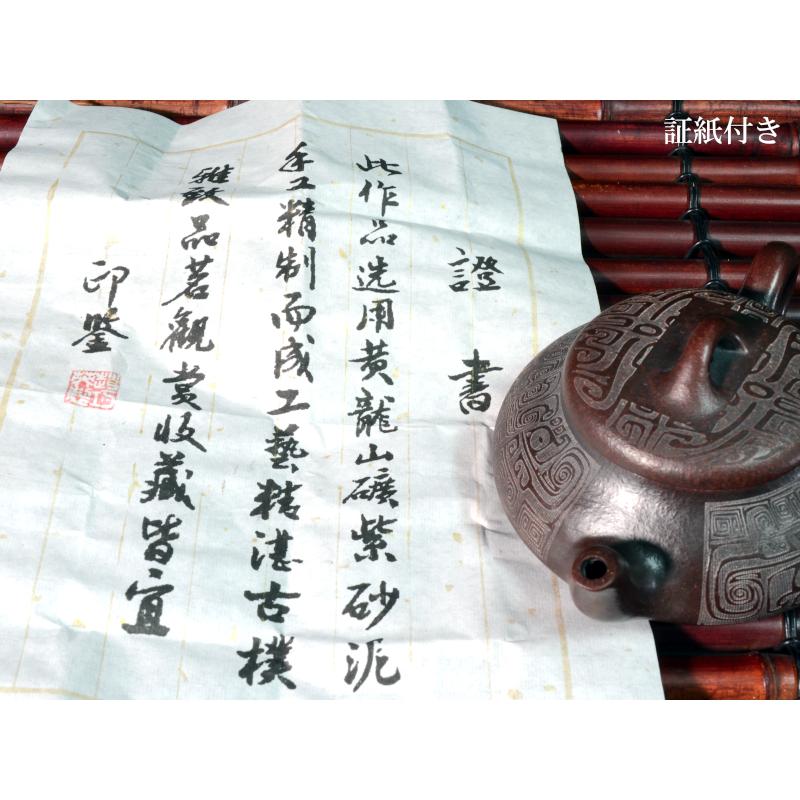 証紙付き
證書
此作品选用黄龍山礦紫砂泥
手工精制而成工藝精湛古樸
雅致品茗觀赏收藏皆宜
印鑒